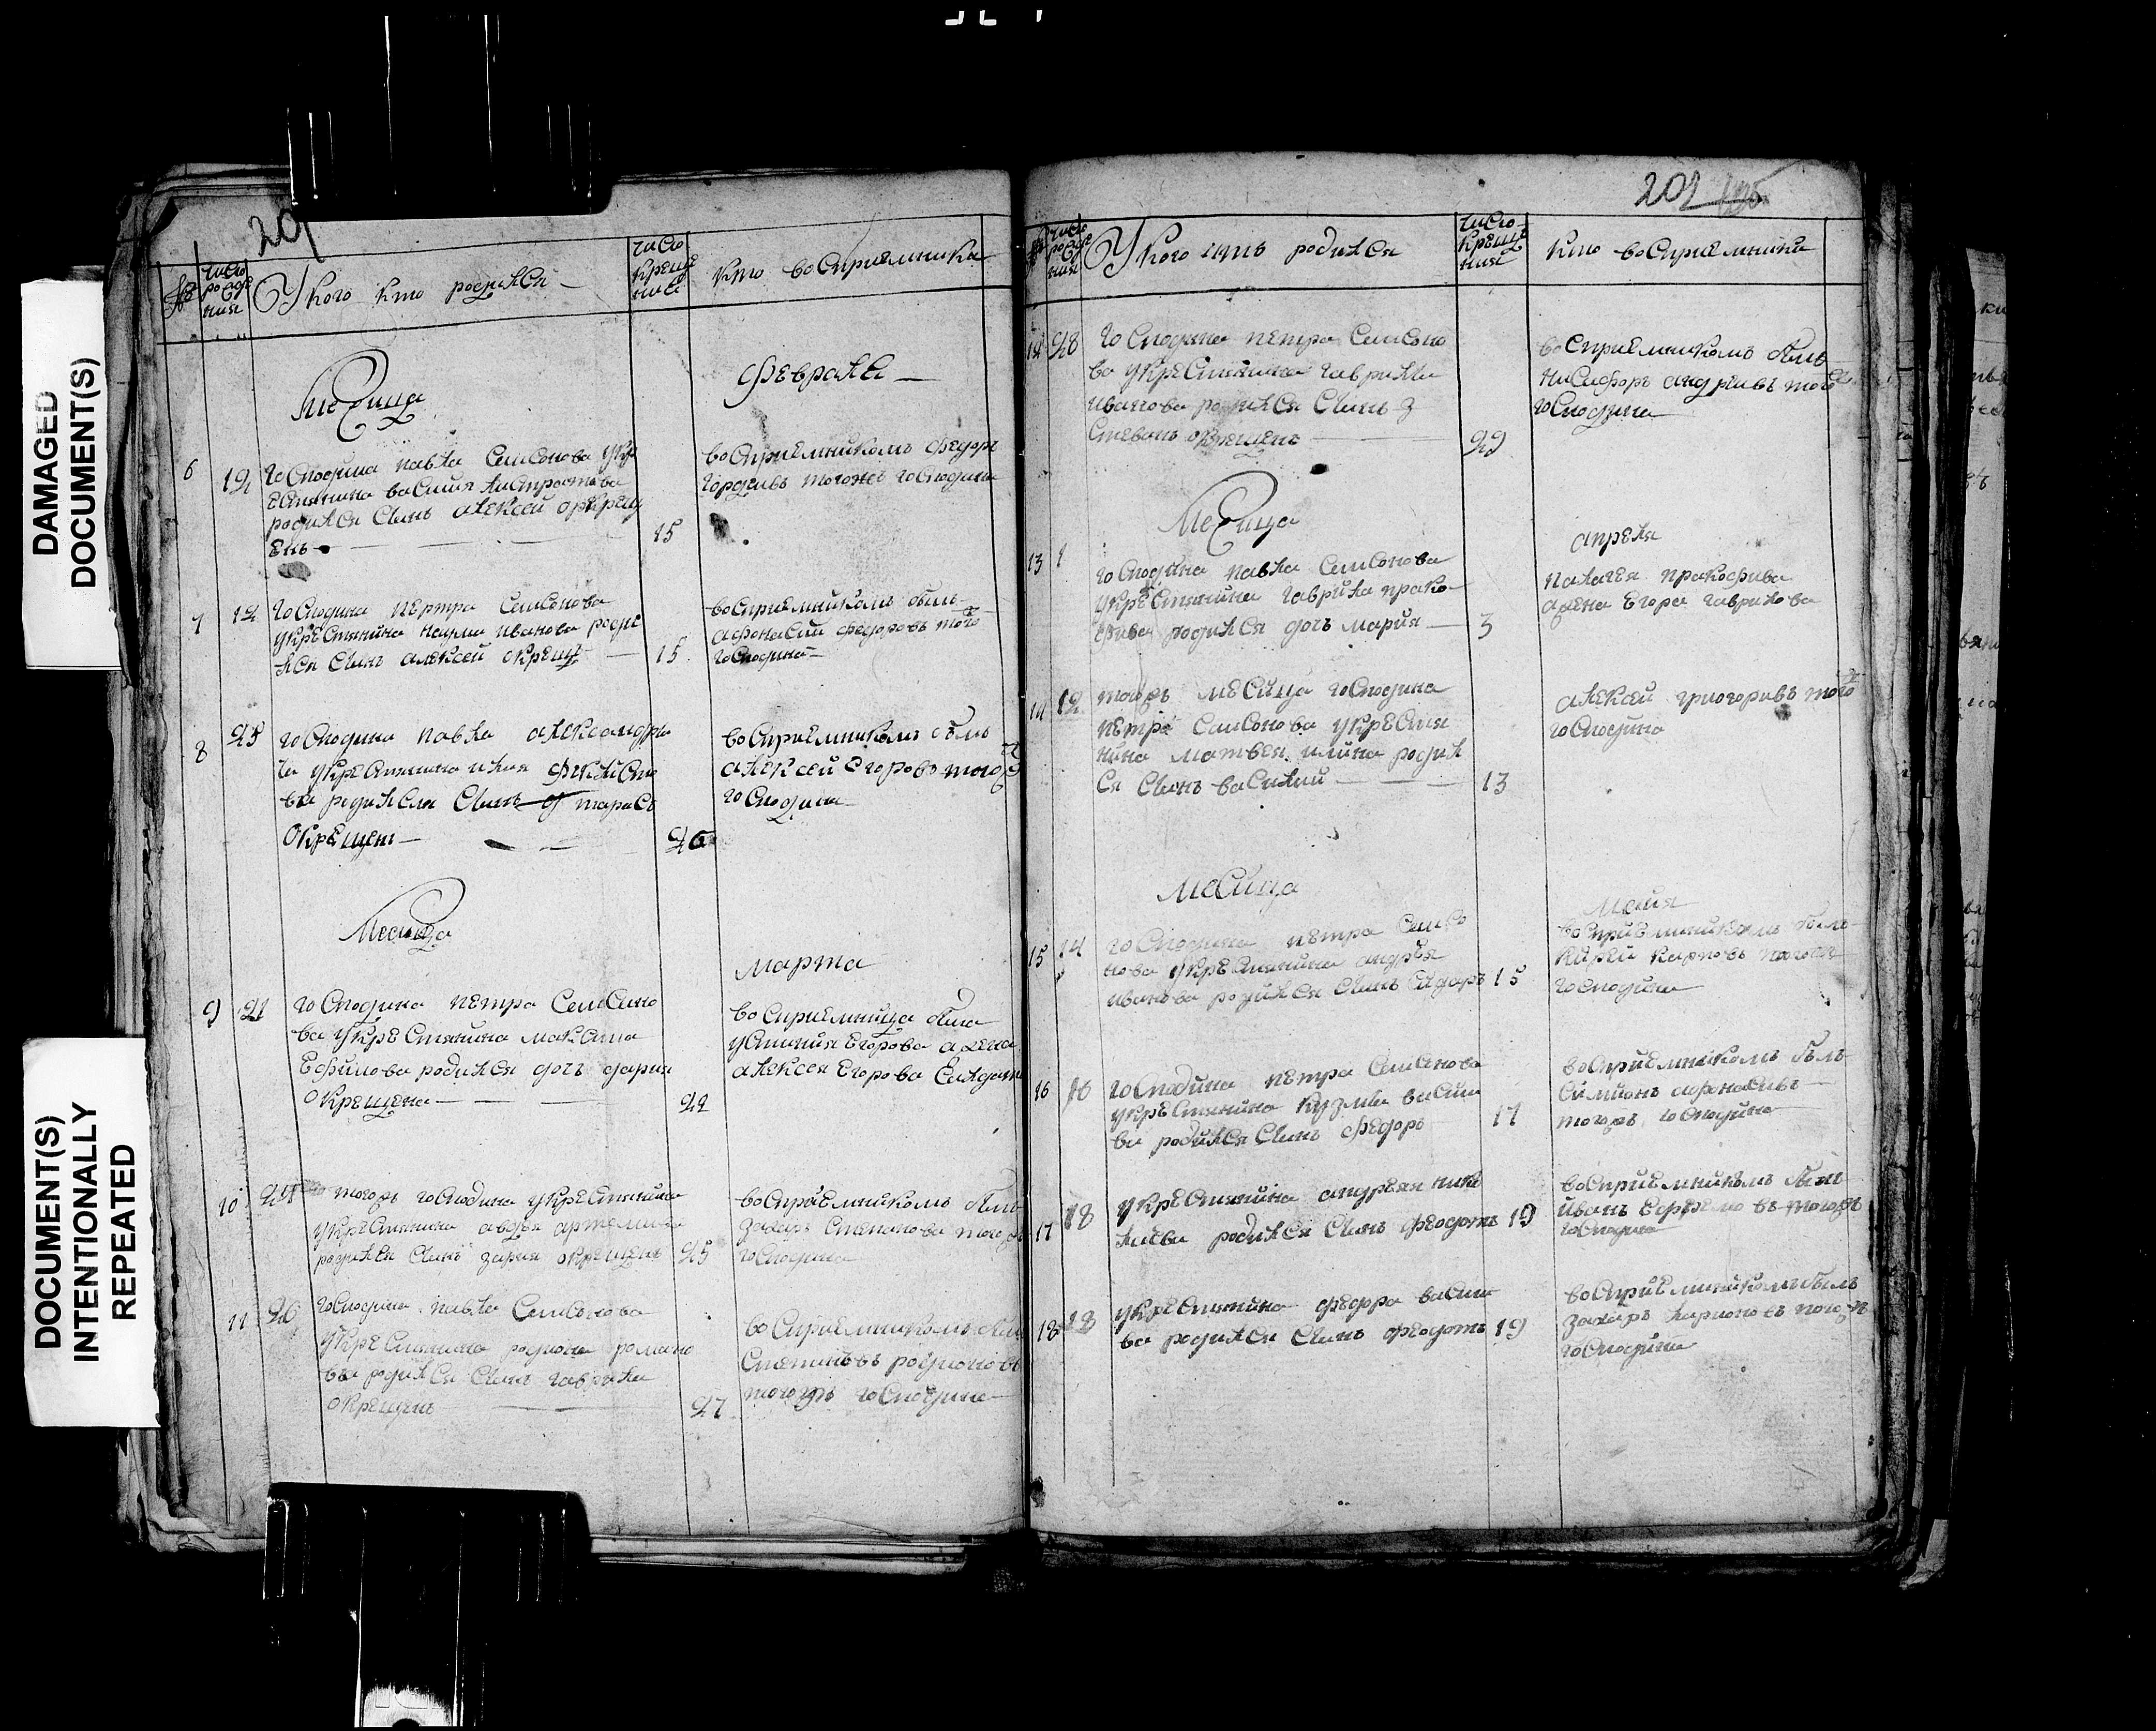 DAMAGED
DOCUMENT(S)
DOCUMENT(S)
INTENTIONALLY
REPEATED
201
№
число рожде ния
У кого кто родился
число креще ния
кто восприемники
Месица
Февраля
6
12
Господина павла Самсонова укр
естянина василя
родился Сынъ алексей окрещ
енъ
15
восприемникомъ федоръ
гордѣивъ тогоже господина
7
12
Господина петра Самсонова
укрестянина наума иванова роди
лся Сынъ алексей окрещ
15
восприемникомъ былъ
афонасий федоровъ того
господина
8
25
господина павла александро
ва укрестянина илия
ва родился Сынъ тарасъ
окрещенъ
26
восприемникомъ былъ
алексей Егоровъ того ж
господина
Месица
марта
9
21
господина петра Самсоно
ва укрестянина максима
Ефимова родился дочь дария
окрещена
22
восприемница была
устиния Егорова жена
алексея Егорова
10
24
тогожъ господина укрестянина
укрестянина авдѣя артемива
родился Сынъ окрещенъ
25
восприемникомъ былъ
захаръ Степанова тогожъ
господина
11
26
господина павла Самсонова
укрестянина родиона романо
ва родился Сынъ гаврила
окрещенъ
27
восприемникомъ былъ
родионовъ
тогожъ господина
202
число рожде ния
У кого кто родился
число креще ния
кто восприемники
12
28
господина петра Самсоно
ва укрестянина гаврилы
иванова родился Сынъ
Степанъ окрещенъ
29
восприемникомъ былъ
никифоръ андрѣивъ того
господина
Месица
апреля
13
1
господина павла Самсонова
укрестянина гаврила прако
фива родился дочь мария
3
палагея пракофива
жена Егора гаврилова
14
12
тогожъ месица господина
петра Самсонова укрестя
нина матвея илина родил
ся Сынъ василий
13
алексей григоривъ того ж
господина
месица
майя
15
14
господина петра Самсо
нова укрестянина андрѣя
иванова родился Сынъ Сидаръ
15
восприемникомъ былъ
карповъ тогожъ
господина
16
16
господина петра Самсонова
укрестянина кузмы васили
ва родился Сынъ федоръ
17
восприемникомъ былъ
Симионъ афонасивъ
тогожъ господина
17
18
укрестянина андреян ники
родился Сынъ феодотъ
19
восприемникомъ былъ
иванъ Ефремовъ тогожъ
господина
18
18
укрестянина федора васили
ва родился Сынъ феодотъ
19
восприемникомъ былъ
захаръ ларионовъ того ж
господина